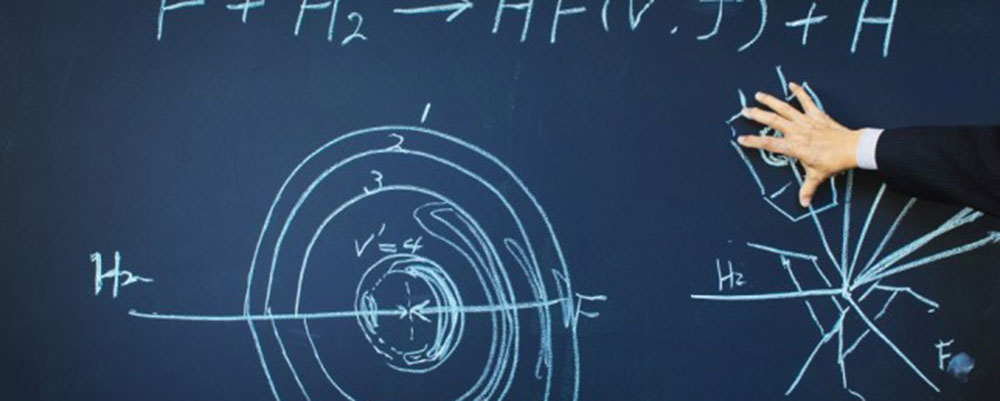 F + H₂ → HF(v', J') + H
1
2
3
v' = 4
H₂
F
H₂
F